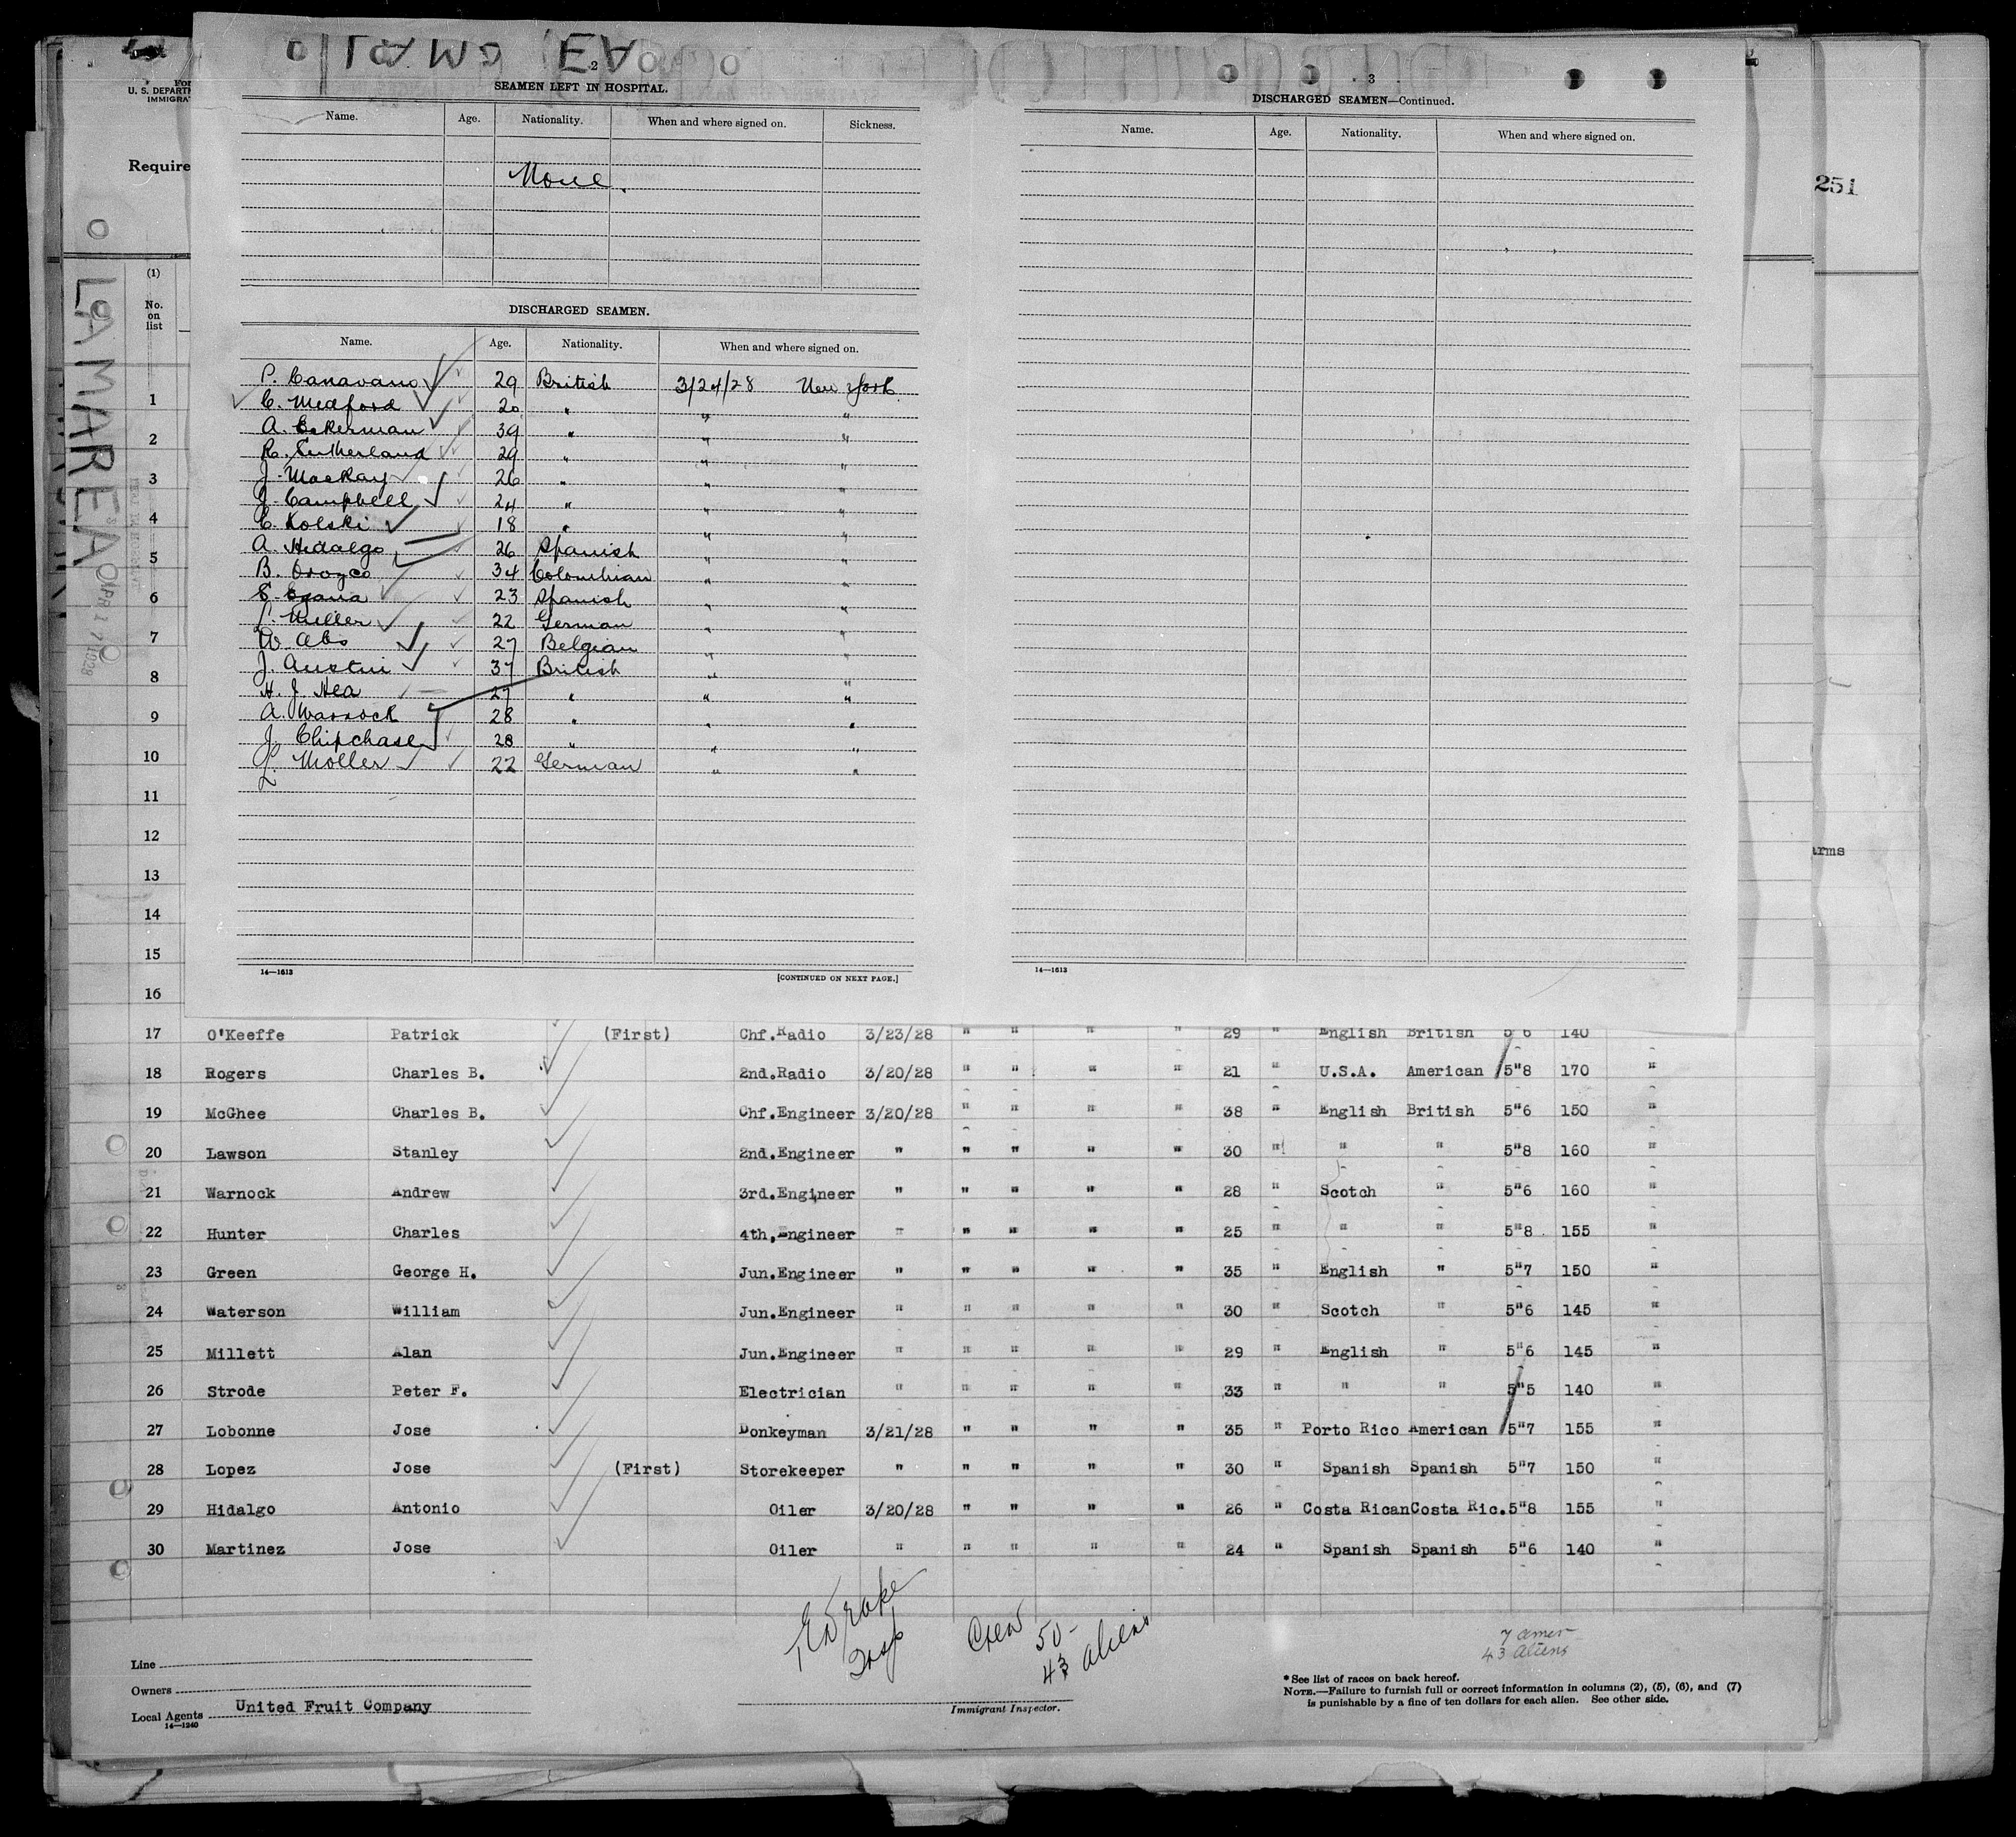 LAMAREA
For
U. S. DEPARTM
IMMIGRAT
Require
251
(1)
No.
on
list
2
SEAMEN LEFT IN HOSPITAL.
Name. Age. Nationality. When and where signed on. Sickness.
None.
DISCHARGED SEAMEN.
Name. Age. Nationality. When and where signed on.
P. Canavano 29 British 3/24/28 New York.
C. Medford 20 " " "
A. Eckerman 39 " " "
R. Sutherland 29 " " "
J. MacKay 26 " " "
J. Campbell 24 " " "
C. Kolski 18 " " "
A. Hidalgo 26 Spanish " "
B. Orozco 34 Colombian " "
E. Egana 23 Spanish " "
L. Miller 22 German " "
W. Abs 27 Belgian " "
J. Austin 37 British " "
H. J. Hea 27 " " "
A. Warnock 28 " " "
J. Chipchase 28 " " "
L. Moller 22 German " "
14—1613 [CONTINUED ON NEXT PAGE.]
3
DISCHARGED SEAMEN—Continued.
Name. Age. Nationality. When and where signed on.
14—1613
arms
1
2
3
4
5
6
7
8
9
10
11
12
13
14
15
16
17 O'Keeffe Patrick (First) Chf.Radio 3/23/28 " " " " 29 " English British 5"6 140
18 Rogers Charles B. 2nd.Radio 3/20/28 " " " " 21 " U.S.A. American 5"8 170 "
19 McGhee Charles B. Chf.Engineer 3/20/28 " " " " 38 " English British 5"6 150 "
20 Lawson Stanley 2nd.Engineer " " " " " 30 " " " 5"8 160 "
21 Warnock Andrew 3rd.Engineer " " " " " 28 " Scotch " 5"6 160 "
22 Hunter Charles 4th.Engineer " " " " " 25 " " " 5"8 155 "
23 Green George H. Jun.Engineer " " " " " 35 " English " 5"7 150 "
24 Waterson William Jun.Engineer " " " " " 30 " Scotch " 5"6 145 "
25 Millett Alan Jun.Engineer " " " " " 29 " English " 5"6 145 "
26 Strode Peter F. Electrician " " " " " 33 " " " 5"5 140 "
27 Lobonne Jose Donkeyman 3/21/28 " " " " 35 " Porto Rico American 5"7 155 "
28 Lopez Jose (First) Storekeeper " " " " " 30 " Spanish Spanish 5"7 150 "
29 Hidalgo Antonio Oiler 3/20/28 " " " " 26 " Costa Rican Costa Ric. 5"8 155 "
30 Martinez Jose Oiler " " " " " 24 " Spanish Spanish 5"6 140 "
Drake
Insp
Crew 50-
43 aliens
7 amer
43 aliens
Line
Owners
Local Agents United Fruit Company
14—1240
Immigrant Inspector.
* See list of races on back hereof.
NOTE.—Failure to furnish full or correct information in columns (2), (5), (6), and (7)
is punishable by a fine of ten dollars for each alien. See other side.